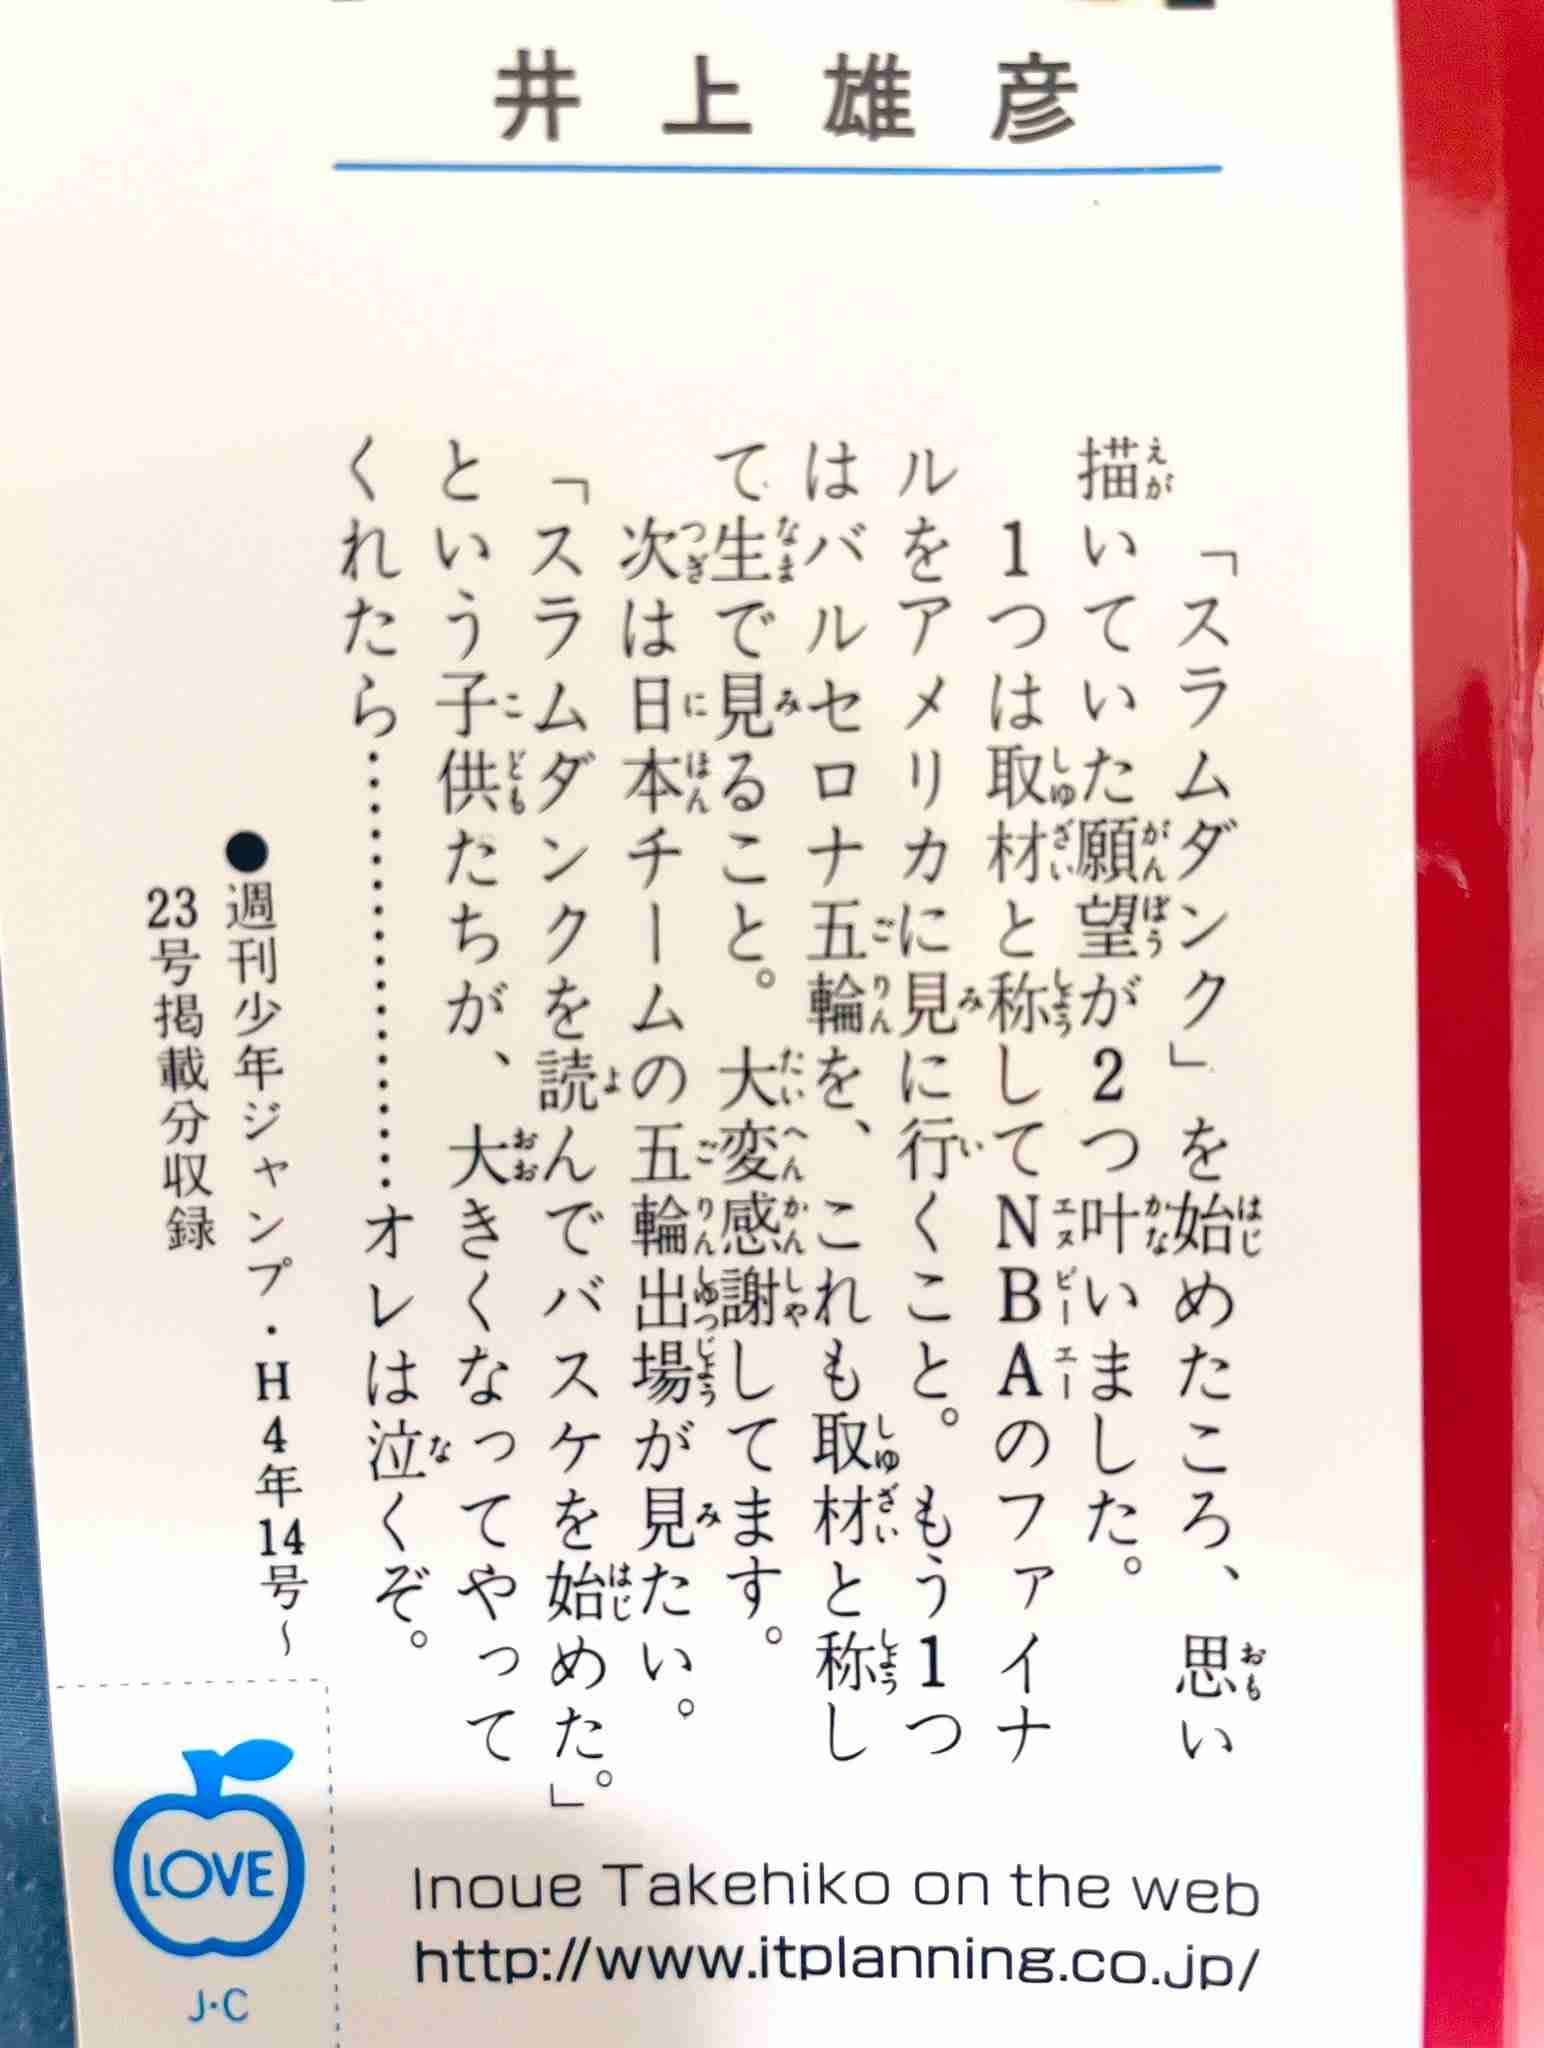 井上雄彦
「スラムダンク」を始めたころ、思い
描いていた願望が2つ叶いました。
1つは取材と称してNBAのファイナ
ルをアメリカに見に行くこと。もう1つ
はバルセロナ五輪を、これも取材と称し
て生で見ること。大変感謝してます。
次は日本チームの五輪出場が見たい。
「スラムダンクを読んでバスケを始めた。」
という子供たちが、大きくなってやって
くれたら……………………オレは泣くぞ。
●週刊少年ジャンプ・H4年14号〜
23号掲載分収録
LOVE
J・C
Inoue Takehiko on the web
http://www.itplanning.co.jp/